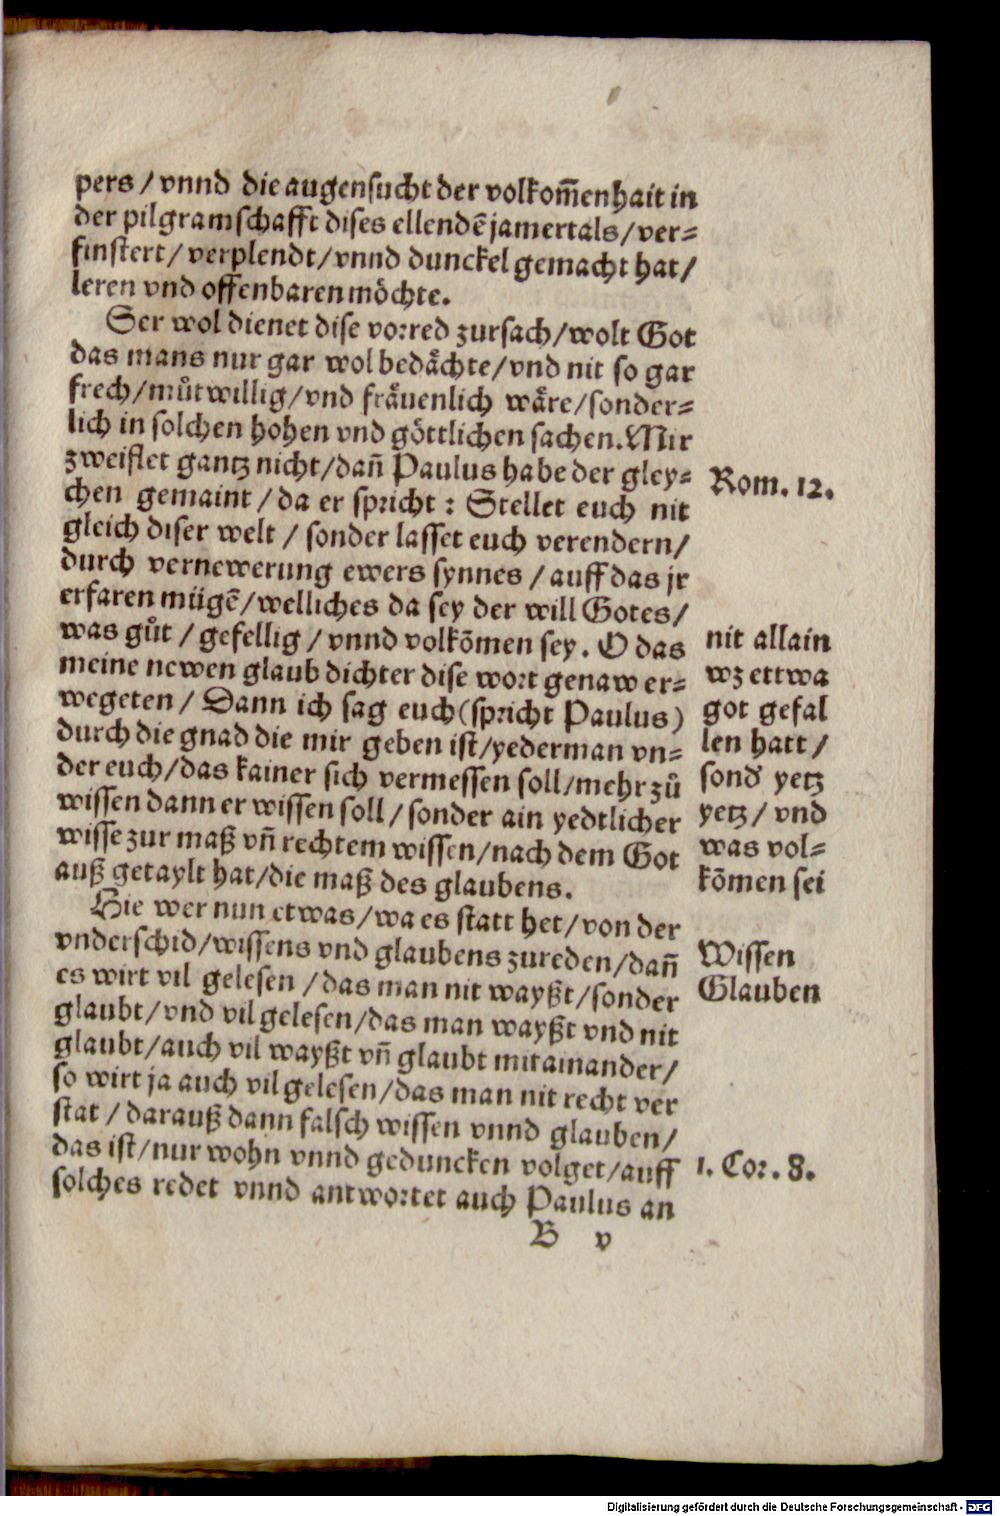 pers / vnnd die augensucht der volkom̃enhait in
der pilgramschafft dises ellendẽ jamertals / ver⸗
finstert / verplendt / vnnd dunckel gemacht hat /
leren vnd offenbaren möchte.
Ser wol dienet dise vorred zur sach / wolt Got
das mans nur gar wol bedåchte / vnd nit so gar
frech / můtwillig / vnd fråuenlich wåre / sonder⸗
lich in solchen hohen vnd göttlichen sachen. Mir
zweiflet gantz nicht / dañ Paulus habe der gley⸗
chen gemaint / da er spricht : Stellet euch nit
gleich diser welt / sonder lasset euch verendern /
durch vernewerung ewers synnes / auff das jr
erfaren mügẽ / welliches da sey der will Gotes /
was gůt / gefellig / vnnd volkõmen sey. O das
meine newen glaub dichter dise wort genaw er⸗
wegeten / Dann ich sag euch (spricht Paulus)
durch die gnad die mir geben ist / yederman vn⸗
der euch / das kainer sich vermessen soll / mehr zů
wissen dann er wissen soll / sonder ain yedtlicher
wisse zur maß vñ rechtem wissen / nach dem Got
auß getaylt hat / die maß des glaubens.
Hie wer nun etwas / wa es statt het / von der
vnderschid / wissens vnd glaubens zureden / dañ
es wirt vil gelesen / das man nit wayßt / sonder
glaubt / vnd vil gelesen / das man wayßt vnd nit
glaubt / auch vil wayßt vñ glaubt mitainander /
so wirt ja auch vil gelesen / das man nit recht ver
stat / darauß dann falsch wissen vnnd glauben /
das ist / nur wohn vnnd geduncken volget / auff
solches redet vnnd antwortet auch Paulus an
B v
Rom. 12.
nit allain
wz ettwa
got gefal
len hatt /
sond' yetz
yetz / vnd
was vol⸗
kõmen sei
Wissen
Glauben
1. Cor. 8.
Digitalisierung gefördert durch die Deutsche Forschungsgemeinschaft - DFG